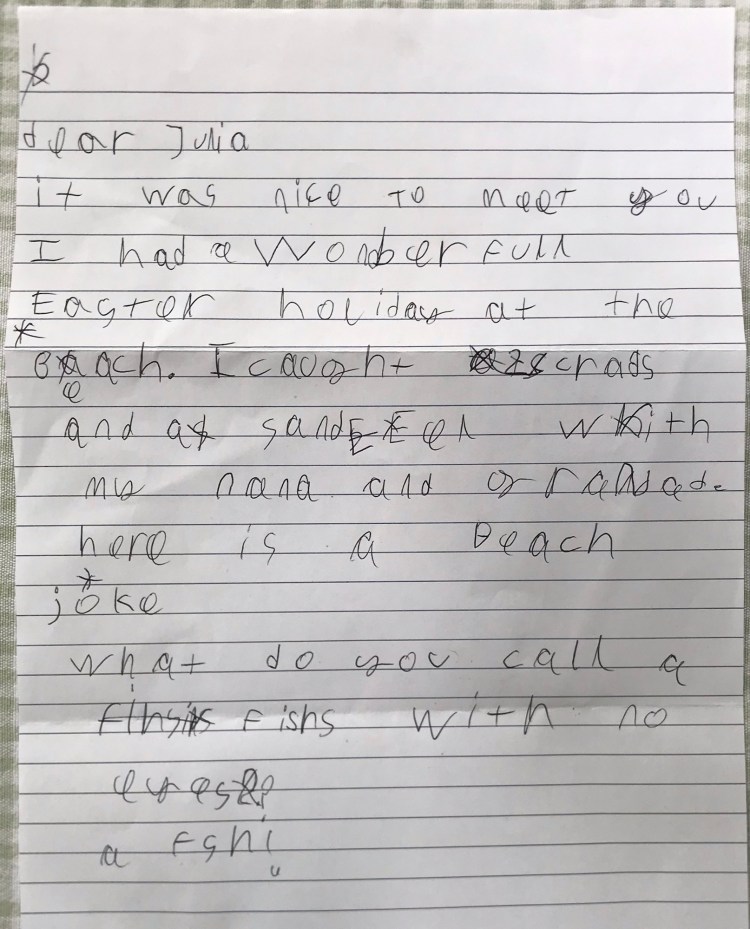 dear Julia
it was nice to meet you
I had a Wonderfull
Easter holiday at the
Beach. I caught 28 crabs
and a sand Eel with
my nana and grandad.
here is a Beach
joke
what do you call a
fishs with no
eyes
a Fsh!